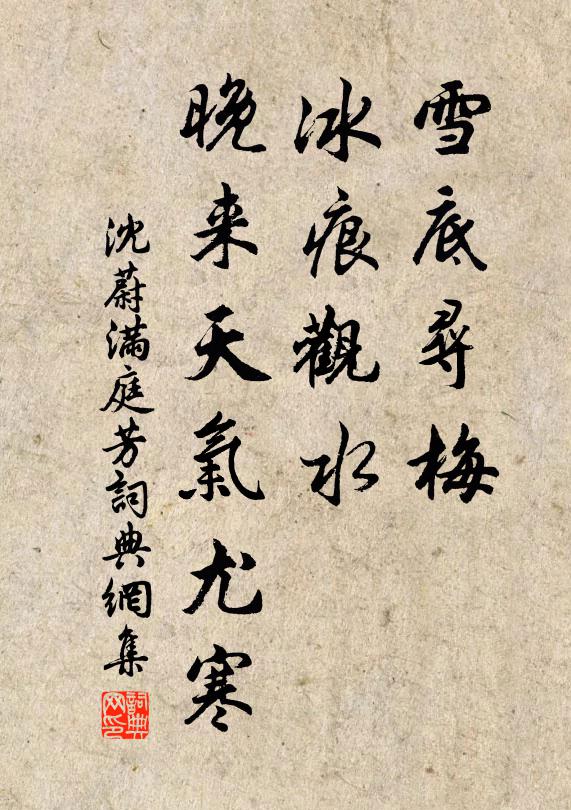 雪底尋梅
冰痕觀水
晚来天氣尤寒
沈蔚滿庭芳詞典網集
詞典网印